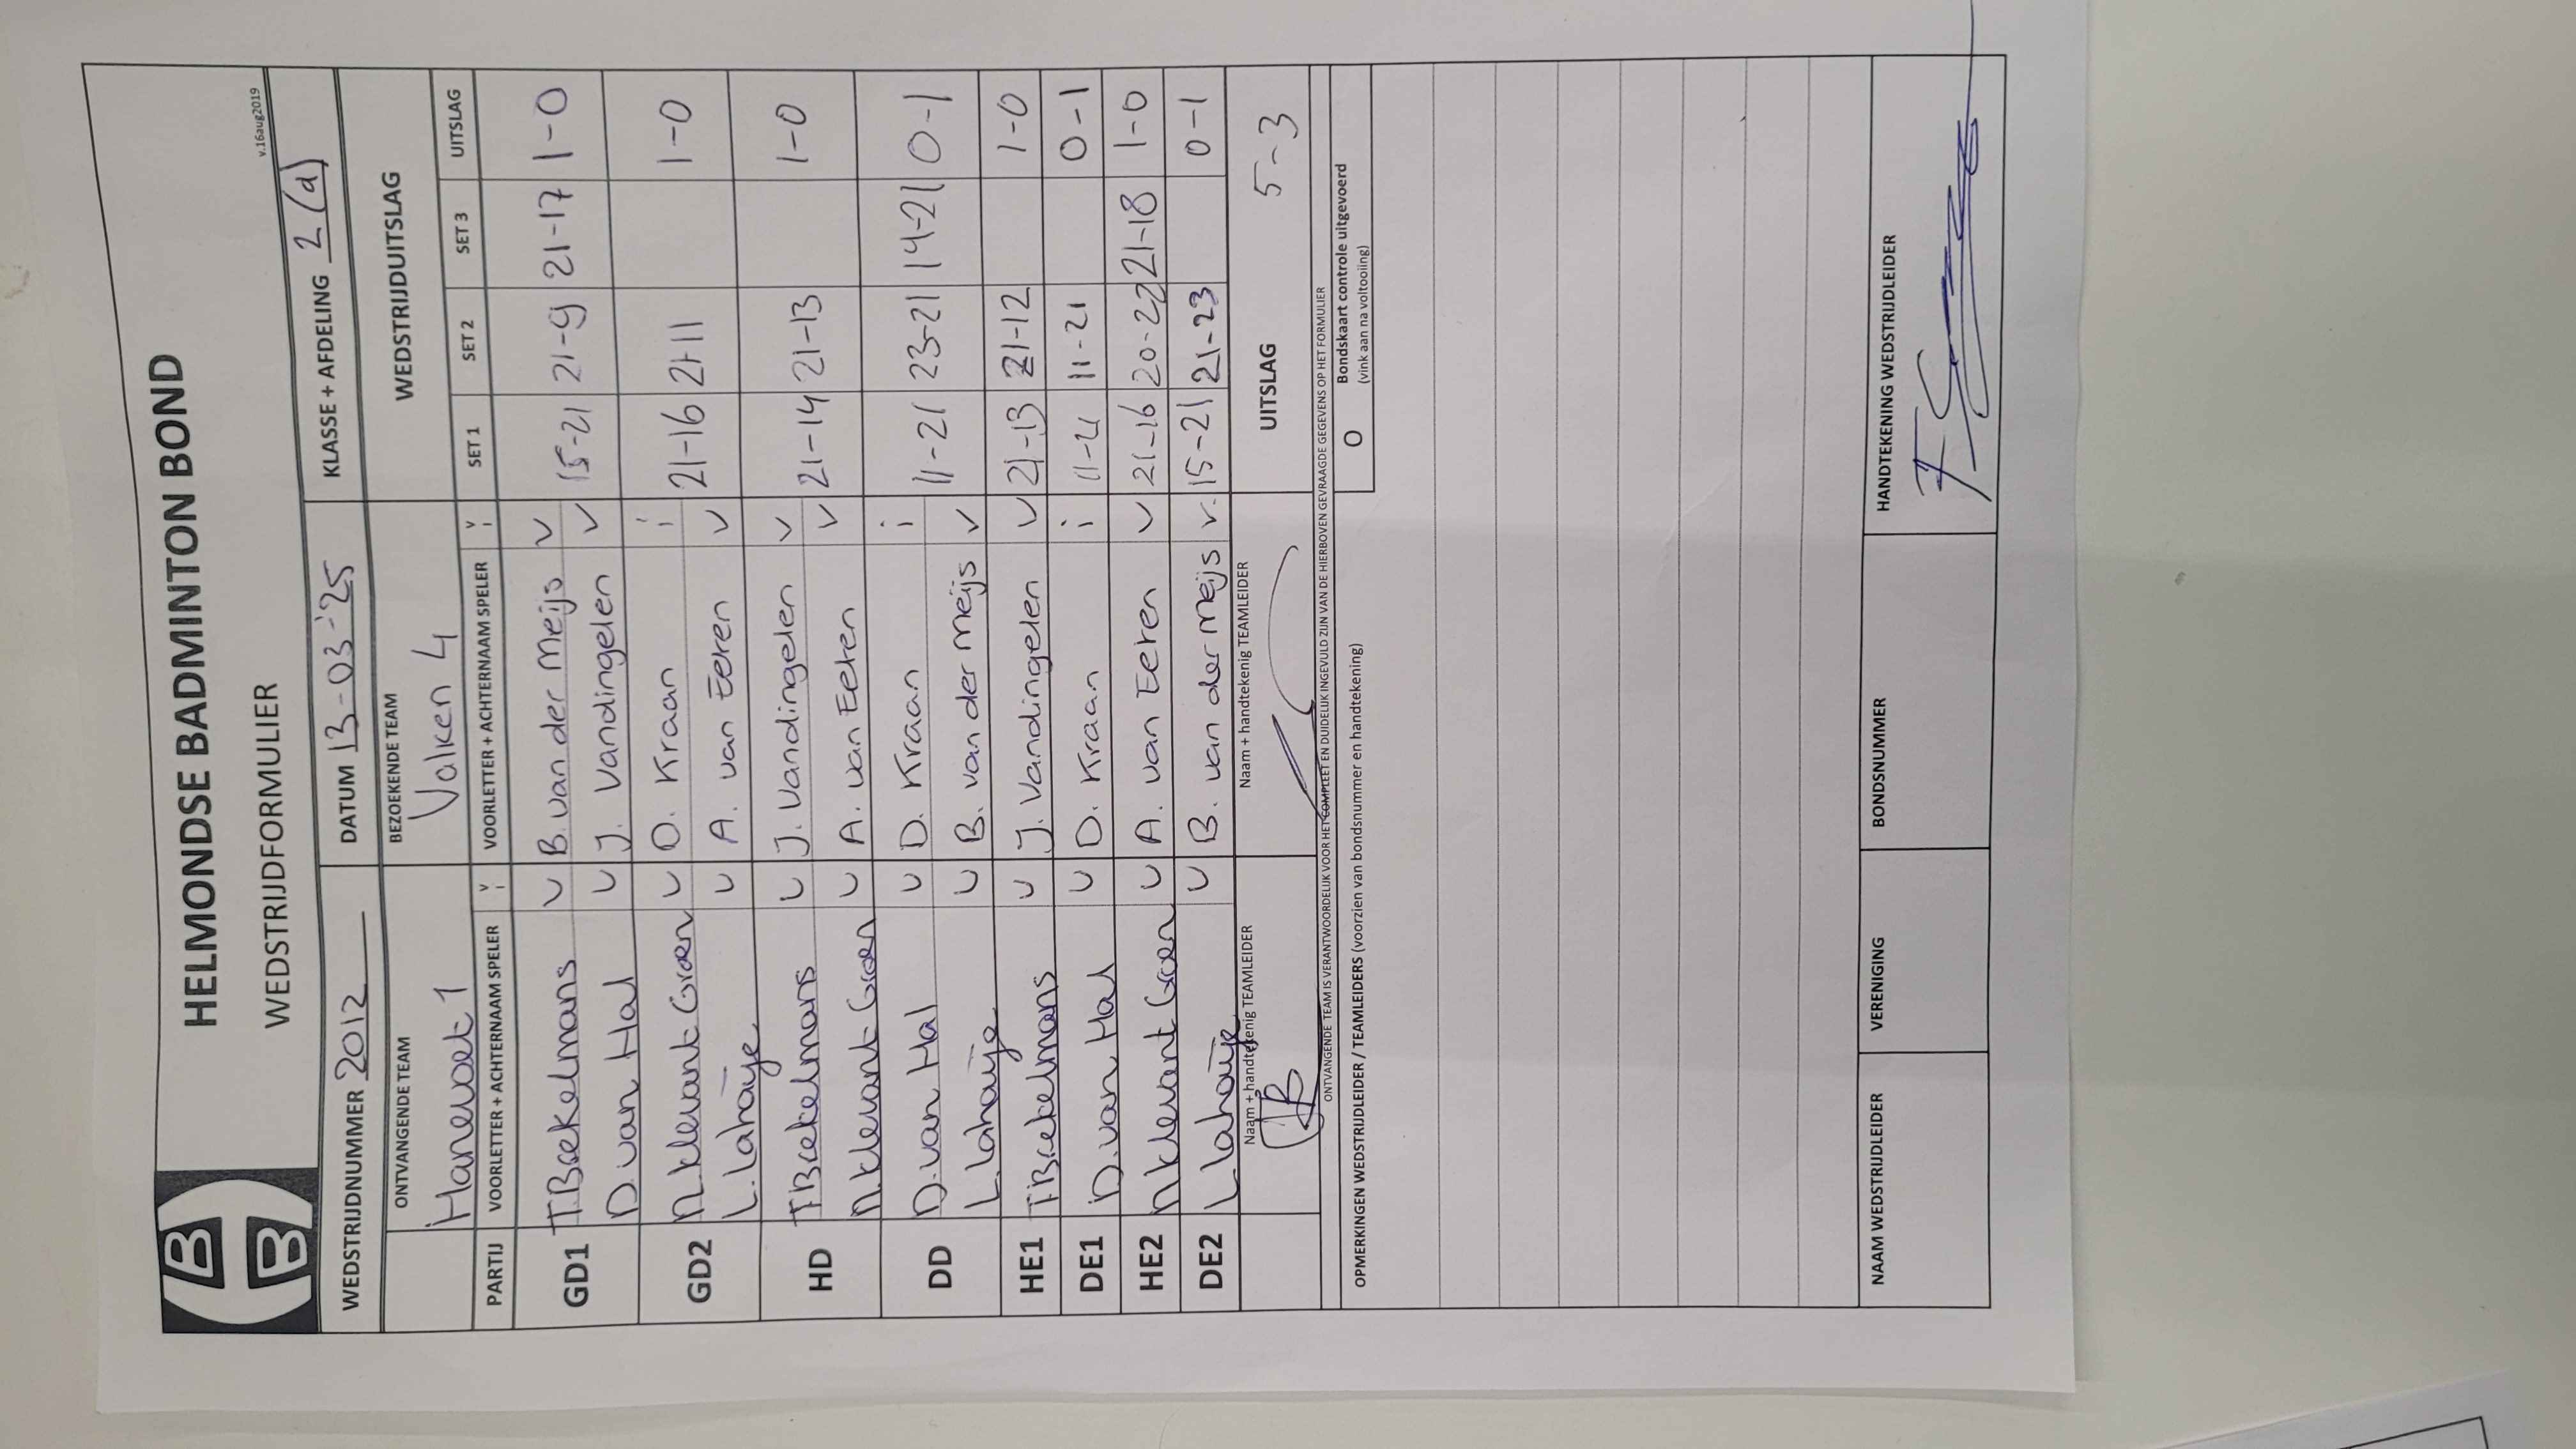 HELMONDSE BADMINTON BOND
WEDSTRIJDFORMULIER
v.16aug2019
WEDSTRIJDNUMMER 2012 DATUM 13-03-'25 KLASSE + AFDELING 2(d)
ONTVANGENDE TEAM BEZOEKENDE TEAM WEDSTRIJDUITSLAG
Hanevoet 1 Valken 4
PARTIJ VOORLETTER + ACHTERNAAM SPELER v i VOORLETTER + ACHTERNAAM SPELER v i SET 1 SET 2 SET 3 UITSLAG
GD1 T.Broekelmans v B. van der Meijs v 15-21 21-9 21-17 1-0
D. van Hal v J. Vandingelen v
GD2 N.klevant Groen v D. Kraan i 21-16 21-11 1-0
L. Lahaije v A. van Eeren v
HD T Broekelmans v J. Vandingelen v 21-14 21-13 1-0
N.klevant Groen v A. van Eeren v
DD D. van Hal v D. Kraan i 11-21 23-21 14-21 0-1
L. Lahaije v B. van der Meijs v
HE1 T Broekelmans v J. Vandingelen v 21-13 21-12 1-0
DE1 D. van Hal v D. Kraan i 11-21 11-21 0-1
HE2 N klevant Groen v A. van Eeren v 21-16 20-22 21-18 1-0
DE2 L. Lahaije v B. van der Meijs v. 15-21 21-23 0-1
Naam + handtekenig TEAMLEIDER Naam + handtekenig TEAMLEIDER UITSLAG 5-3
ONTVANGENDE TEAM IS VERANTWOORDELIJK VOOR HET COMPLEET EN DUIDELIJK INGEVULD ZIJN VAN DE HIERBOVEN GEVRAAGDE GEGEVENS OP HET FORMULIER
OPMERKINGEN WEDSTRIJDLEIDER / TEAMLEIDERS (voorzien van bondsnummer en handtekening) O Bondskaart controle uitgevoerd
(vink aan na voltooiing)
NAAM WEDSTRIJDLEIDER VERENIGING BONDSNUMMER HANDTEKENING WEDSTRIJDLEIDER